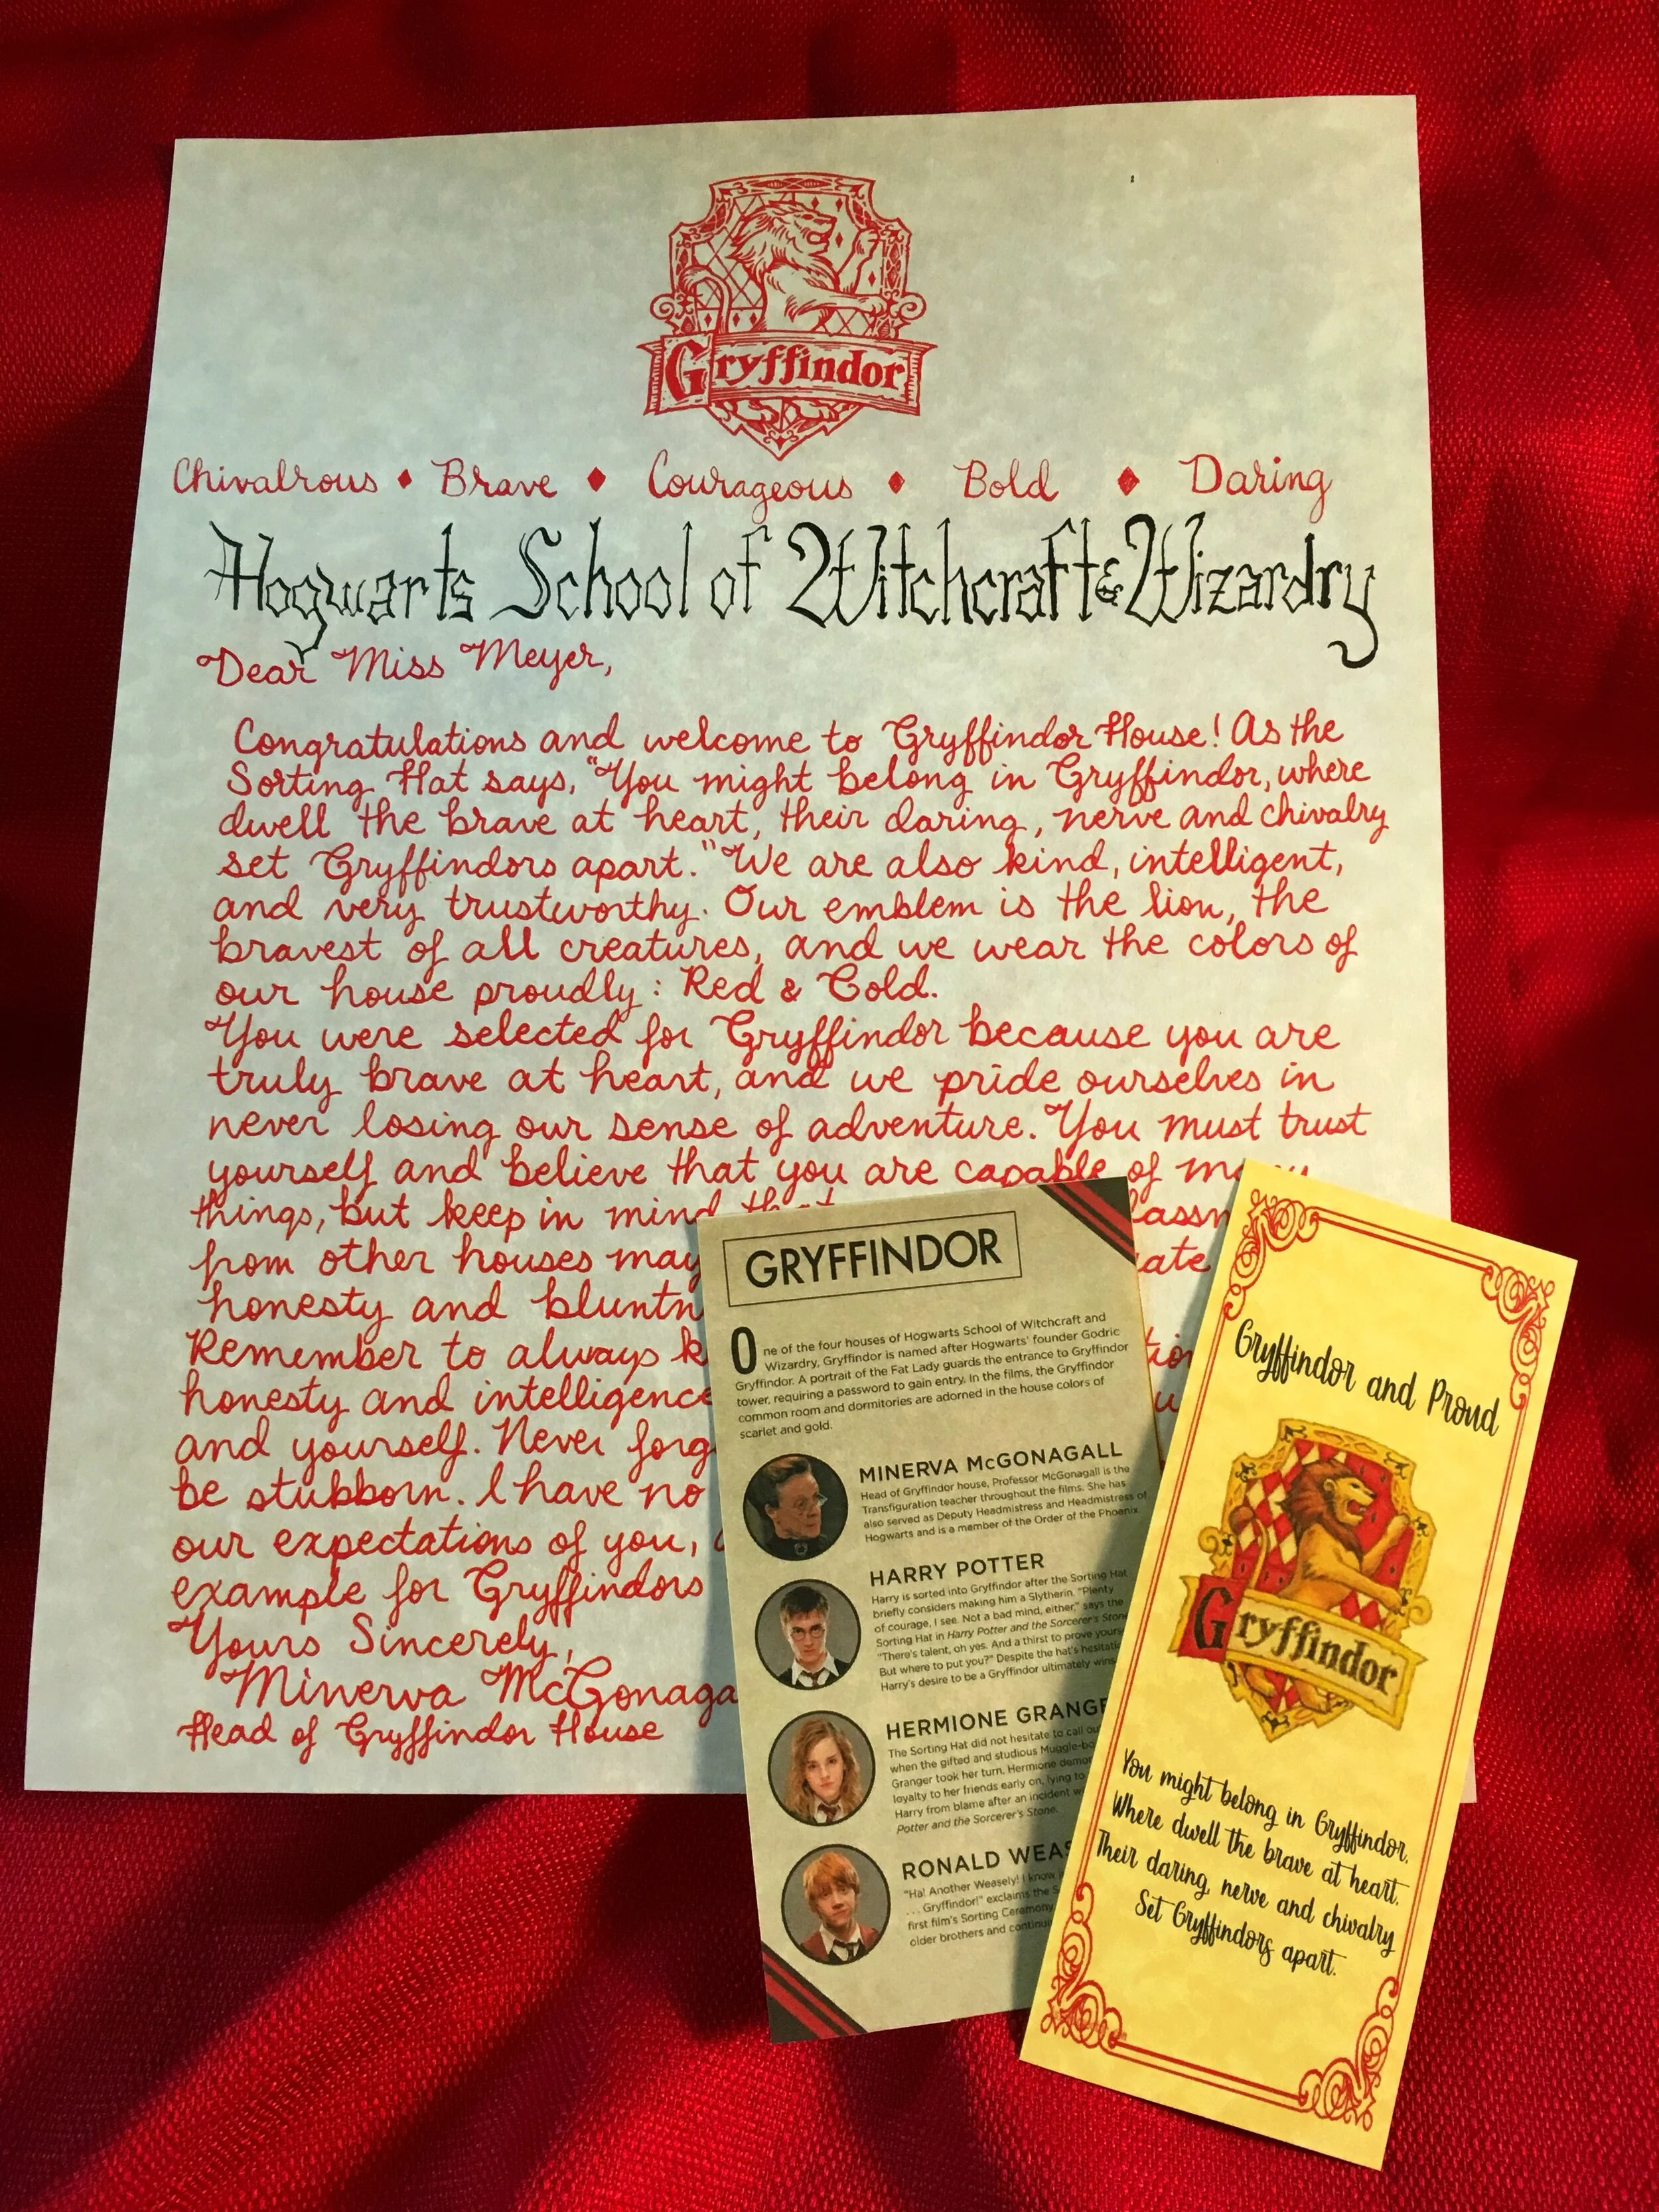 Gryffindor
Chivalrous ♦ Brave ♦ Courageous ♦ Bold ♦ Daring
Hogwarts School of Witchcraft & Wizardry
Dear Miss Meyer,
Congratulations and welcome to Gryffindor House! As the
Sorting Hat says, "You might belong in Gryffindor, where
dwell the brave at heart, their daring, nerve and chivalry
set Gryffindors apart." We are also kind, intelligent,
and very trustworthy. Our emblem is the lion, the
bravest of all creatures, and we wear the colors of
our house proudly: Red & Gold.
You were selected for Gryffindor because you are
truly brave at heart, and we pride ourselves in
never losing our sense of adventure. You must trust
yourself and believe that you are capable of many
things, but keep in mind that
from other houses may
honesty and
Remember to always
honesty and intelligence
and yourself. Never
be stubborn. I have no
our expectations of you,
example for Gryffindors
Yours Sincerely,
Minerva
Head of Gryffindor House
GRYFFINDOR
One of the four houses of Hogwarts School of Witchcraft and
Wizardry, Gryffindor is named after Hogwarts' founder Godric
Gryffindor. A portrait of the Fat Lady guards the entrance to Gryffindor
tower, requiring a password to gain entry. In the films, the Gryffindor
common room and dormitories are adorned in the house colors of
scarlet and gold.
MINERVA McGONAGALL
Head of Gryffindor house, Professor McGonagall is the
Transfiguration teacher throughout the films. She has
also served as Deputy Headmistress and Headmistress of
Hogwarts and is a member of the Order of the Phoenix.
HARRY POTTER
Harry is sorted into Gryffindor after the Sorting Hat
briefly considers making him a Slytherin. "Plenty
of courage, I see. Not a bad mind, either," says the
Sorting Hat in Harry Potter and the Sorcerer's Stone
"There's talent, oh yes. And a thirst to prove
But where to put you?" Despite the hat's
Harry's desire to be a Gryffindor ultimately wins
HERMIONE
The Sorting Hat did not hesitate to call
when the gifted and studious
Granger took her turn. Hermione
loyalty to her friends early on, lying to
Harry from blame after an incident
Potter and the Sorcerer's Stone.
RONALD
"Ha! Another Weasely! I know
. . . Gryffindor!" exclaims the
first film's Sorting Ceremony
older brothers and
Gryffindor and Proud
Gryffindor
You might belong in Gryffindor,
Where dwell the brave at heart,
Their daring, nerve and chivalry
Set Gryffindors apart.